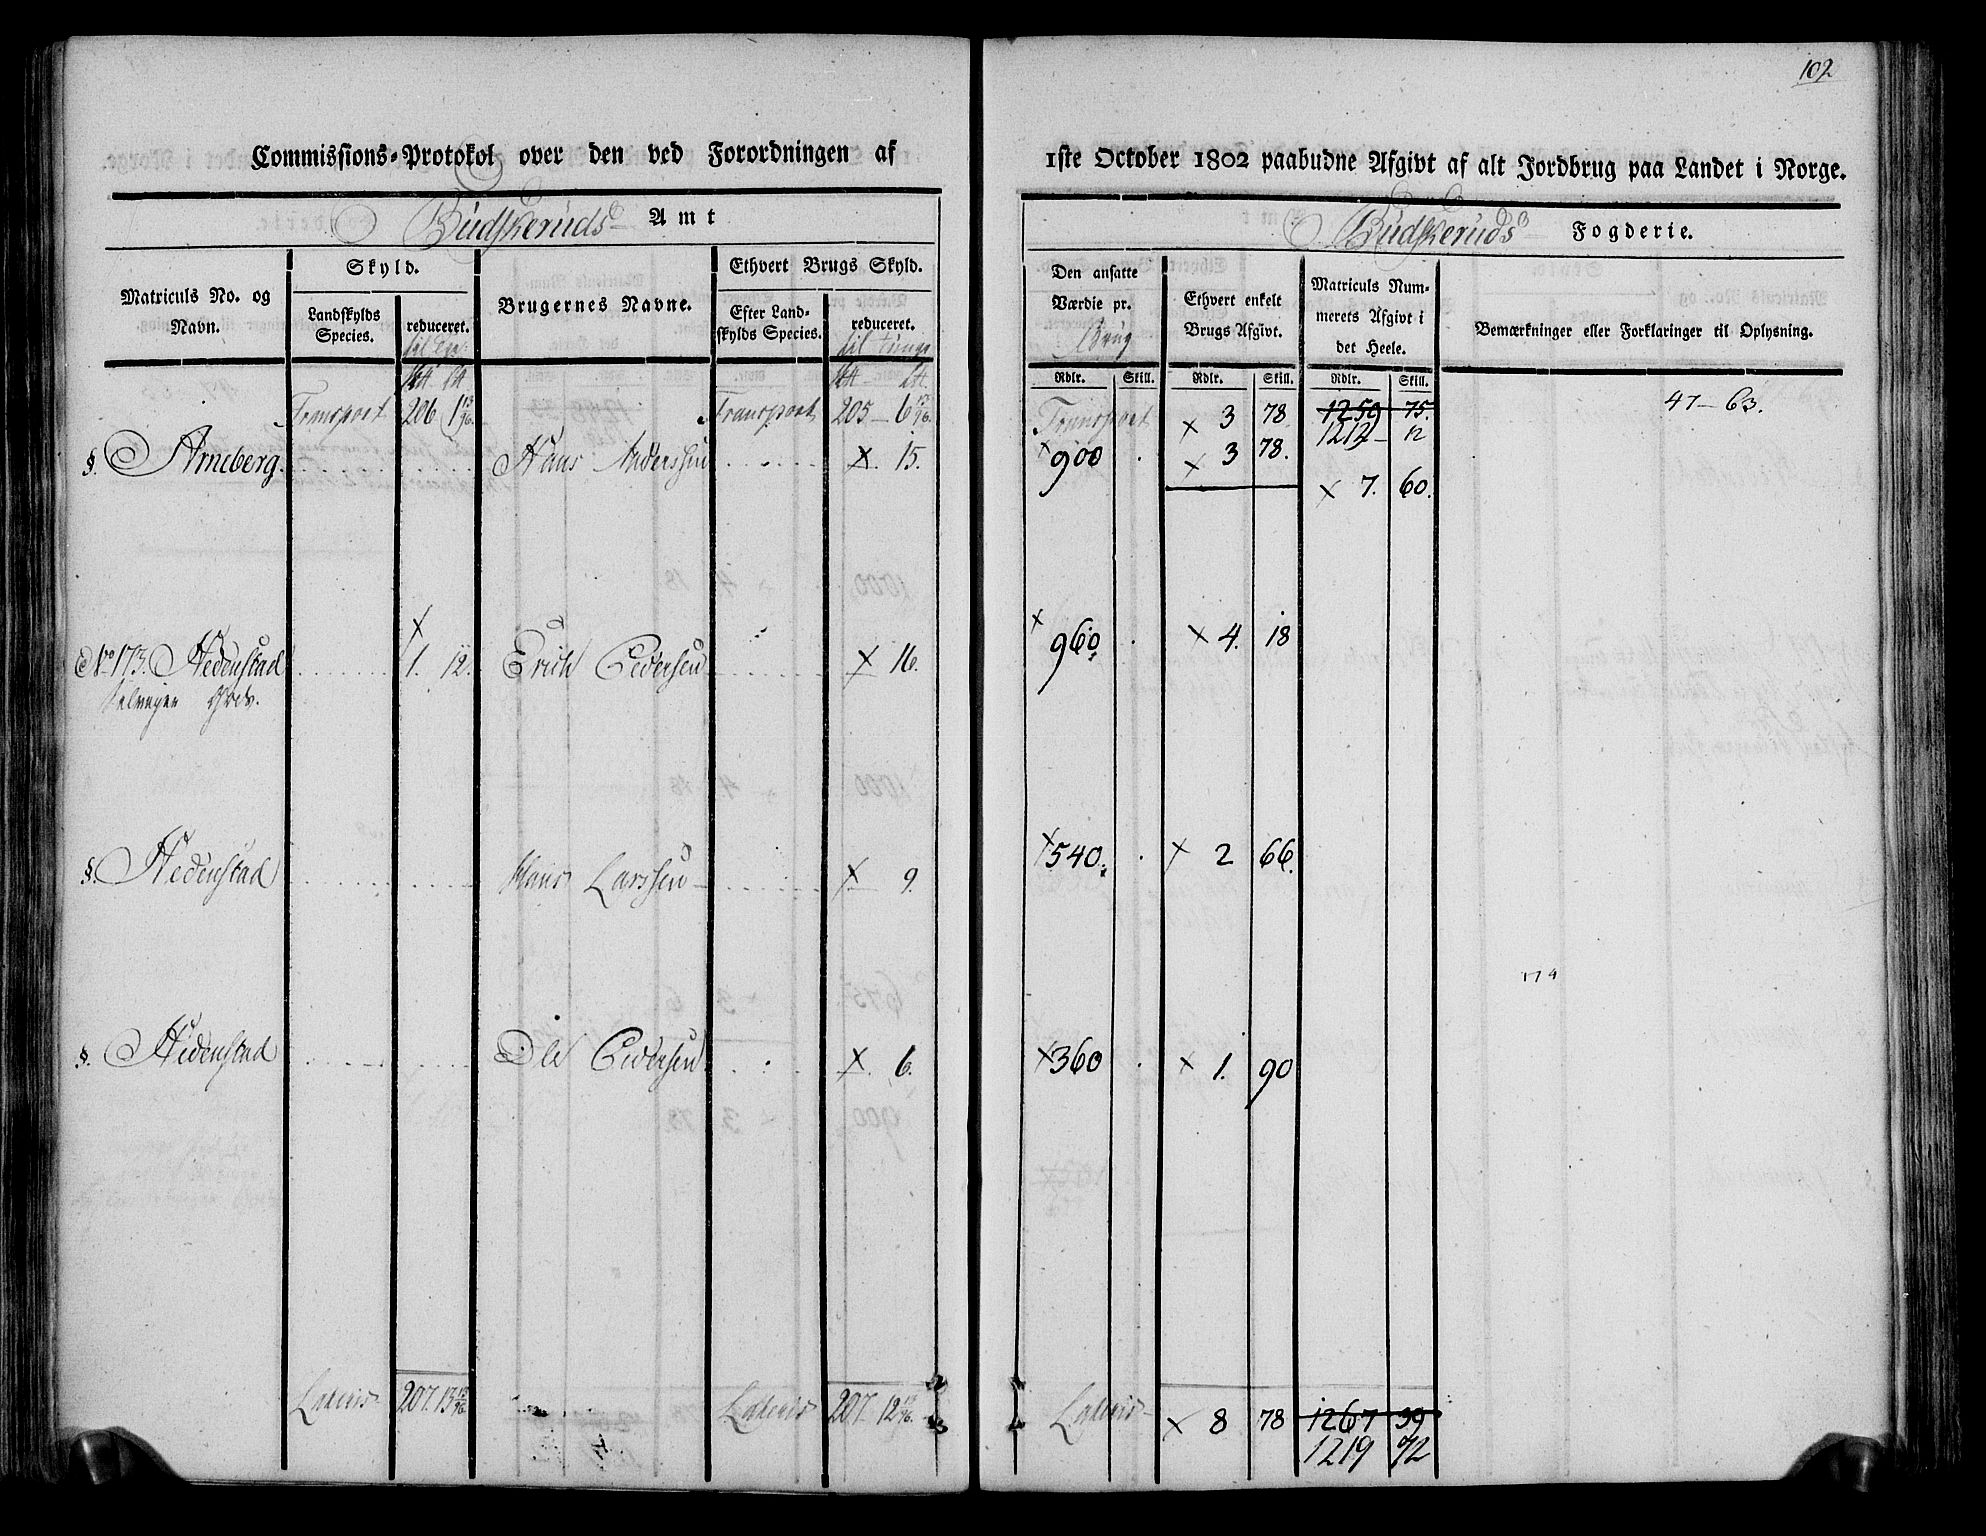 102
Commissions-Protokol over den ved Forordningen af 1ste October 1802 paabudne Afgivt af alt Jordbrug paa Landet i Norge.
Budskeruds Amt
Budskeruds Fogderie.
Matriculs No. og Navn.
Skyld.
Landskylds Species.
reduceret.
Brugernes Navne.
Ethvert Brugs Skyld.
Efter Landskylds Species.
reduceret.
til Tunge
Den ansatte Værdie pr. Brug
Ethvert enkelt Brugs Afgivt.
Matriculs Nummerets Afgivt i det Heele.
Bemærkninger eller Forklaringer til Oplysning.
Rdlr. Skill. Rdlr. Skill. Rdlr. Skill.
Transport 206 1 13/96 Transport 205 – 6 13/96 Transport × 3 78 1259 75. 47 – 63.
1212 – 12
§. Arneberg Hans Anderssen ×. 15. × 900 . × 3 78.
× 7. 60.
No 173. Hedenstad × 1. 12. Erich Pedersen × 16. × 960 . × 4. 18
Selveyer Gods.
§. Hedenstad Hans Larssen × 9. × 540. . × 2 66.
174
§. Hedenstad Ole Pedersen ×. 6. × 360 . × 1. 90
Lateris 207. 13 13/96. Lateris 207. 12 13/96. Lateris × 8 78 1267 39
1219 72